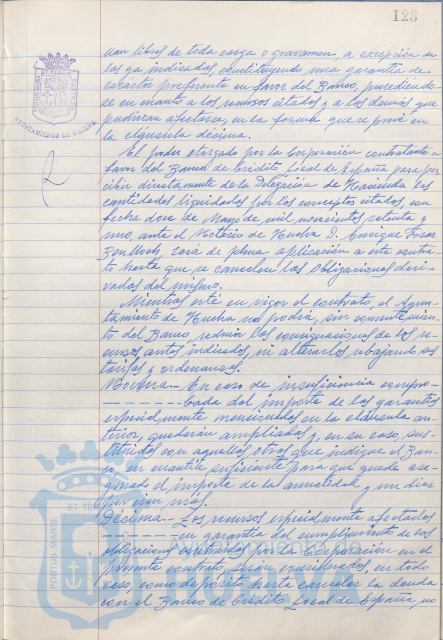 123
van libres de toda carga o gravamen, a excepción de
los ya indicados, constituyendo una garantía de
carácter preferente en favor del Banco, procediendo-
se en cuanto a los recursos citados y a los demás que
pudieran afectarse, en la forma que se prevé en
la cláusula décima.
El poder otorgado por la Corporación contratante a
favor del Banco de Crédito Local de España para per
cibir directamente de la Delegación de Hacienda las
cantidades liquidadas por los conceptos citados, con
fecha doce de Mayo de mil novecientos setenta y
uno, ante el Notario de Huelva D. Enrique
será de plena aplicación a este contra-
to hasta que se cancelen las obligaciones deri-
vadas del mismo.
Mientras esté en vigor el contrato, el Ayun-
tamiento de Huelva no podrá, sin consentimien-
to del Banco, reducir las consignaciones de los re-
cursos antes indicados, ni alterarlos rebajando sus
tarifas y ordenanzas.
Novena.- En caso de insuficiencia compro-
- - - - - - - bada del importe de las garantías
especialmente mencionadas en la cláusula an-
terior, quedarán ampliadas y, en su caso, sus-
tituidas con aquellas otras que indique el Ban-
co, en cuantía suficiente para que quede ase-
gurado el importe de la anualidad y un diez
por cien más.
Décima.- Los recursos especialmente afectados
- - - - - - - en garantía del cumplimiento de las
obligaciones contraídas por la Corporación en el
presente contrato, serán considerados, en todo
caso, como depósito hasta cancelar la deuda
con el Banco de Crédito Local de España, no
AYUNTAMIENTO DE HUELVA
PORTUS MARIS
HUELVA